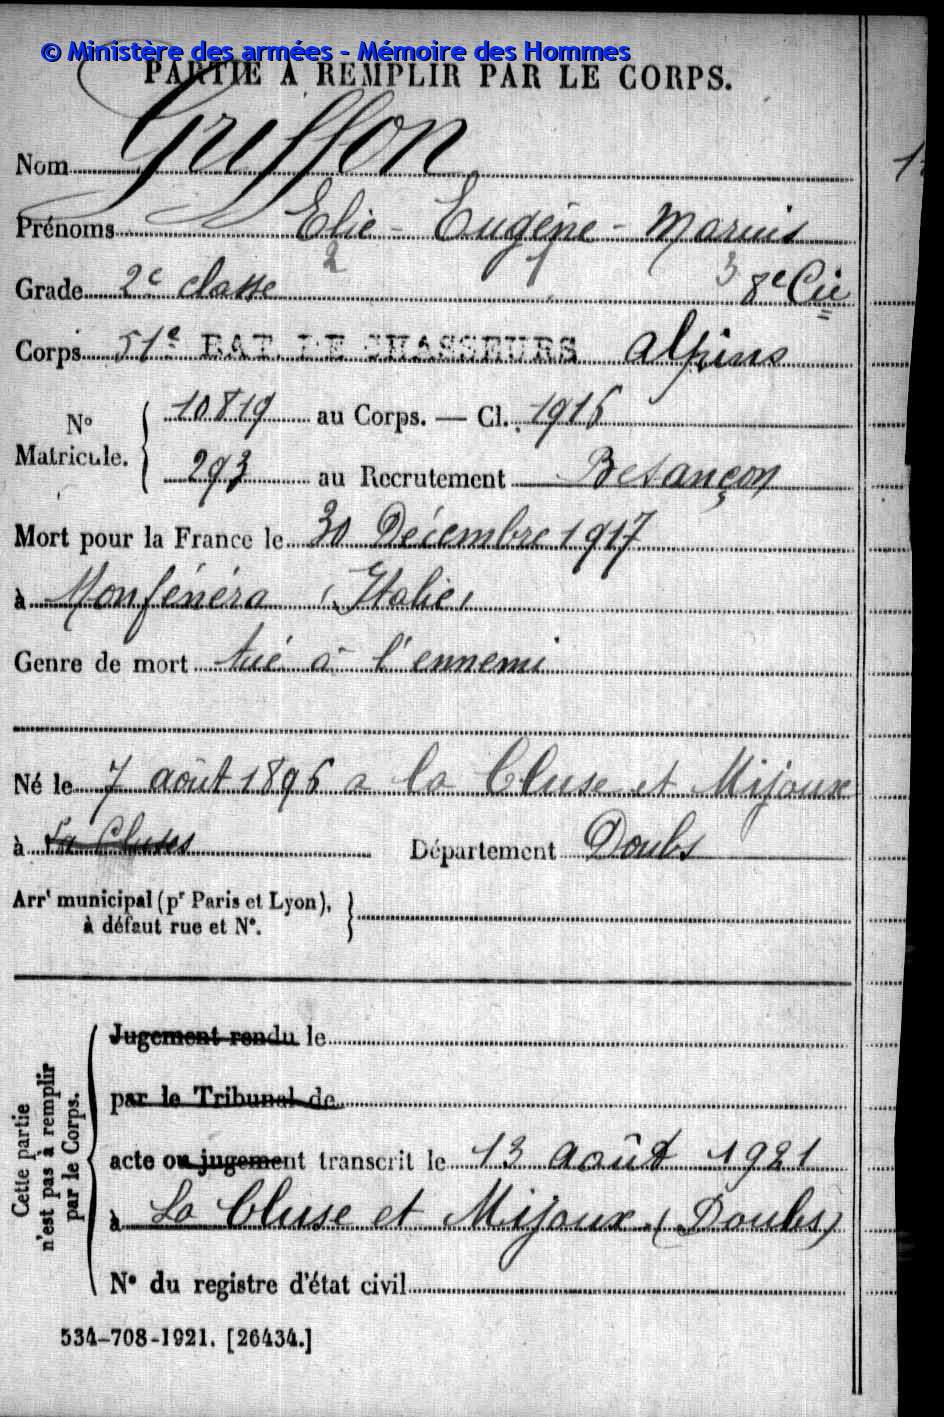 © Ministère des armées - Mémoire des Hommes
PARTIE À REMPLIR PAR LE CORPS.
Nom Griffon
Prénoms Elie - Eugène - Marius
2 1 3
Grade 2e classe 8e Cie
Corps 51e BAT. DE CHASSEURS alpins
No Matricule.
10819 au Corps. — Cl. 1916
293 au Recrutement Besançon
Mort pour la France le 30 Décembre 1917
à Monfénéra (Italie)
Genre de mort tué à l'ennemi
Né le 7 août 1896 a la Cluse et Mijoux
à La Cluses Département Doubs
Arrt municipal (pr Paris et Lyon),
à défaut rue et No.
Cette partie
n'est pas à remplir
par le Corps.
Jugement rendu le
par le Tribunal de
acte ou jugement transcrit le 13 août 1921
à La Cluse et Mijoux (Doubs)
No du registre d'état civil
534-708-1921. [26434.]